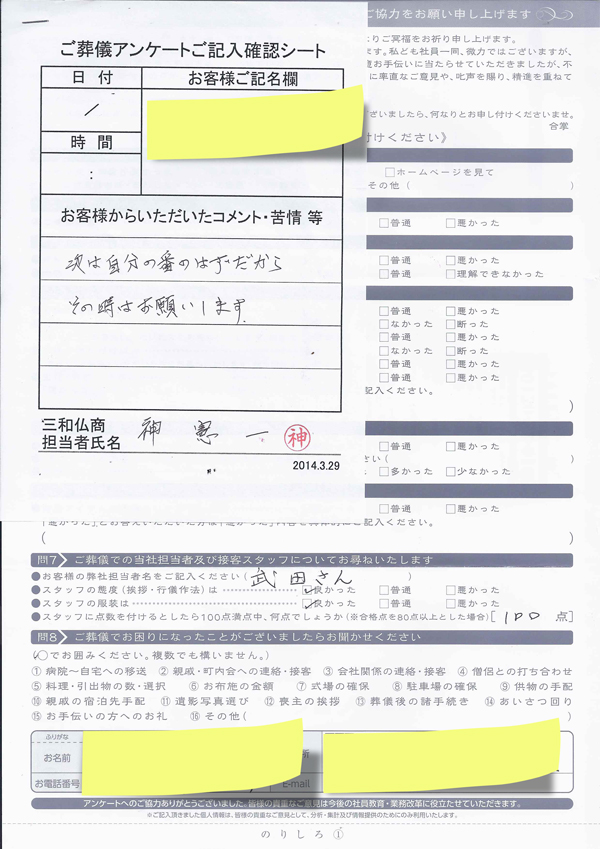 ご葬儀アンケートご記入確認シート
日 付
お客様ご記名欄
/
時 間
:
お客様からいただいたコメント・苦情 等
次は自分の番のはずだから
その時はお願いします
三和仏商
担当者氏名
神 憲 一
神
2014.3.29
ご協力をお願い申し上げます
りご冥福をお祈り申し上げます。
ます。私ども社員一同、微力ではございますが、
お手伝いに当たらせていただきましたが、不
に率直なご意見や、叱声を賜り、精進を重ねて
ざいましたら、何なりとお申し付けくださいませ。
合掌
付けください》
□ホームページを見て
その他( )
□普通 □悪かった
□普通 □悪かった
□普通 □理解できなかった
□普通 □悪かった
□なかった □断った
□普通 □悪かった
□なかった □断った
□普通 □悪かった
□普通 □悪かった
記入ください。
)
□普通 □悪かった
さい( )
□多かった □少なかった
□普通 □悪かった
(
問7 ご葬儀での当社担当者及び接客スタッフについてお尋ねいたします
●お客様の弊社担当者名をご記入ください( 武田さん )
●スタッフの態度(挨拶・行儀作法)は ☑良かった □普通 □悪かった
●スタッフの服装は ☑良かった □普通 □悪かった
●スタッフに点数を付けるとしたら100点満点中、何点でしょうか(※合格点を80点以上とした場合)[ 100 点]
問8 ご葬儀でお困りになったことがございましたらお聞かせください
(○でお囲みください。複数でも構いません。)
①病院～自宅への移送 ②親戚・町内会への連絡・接客 ③会社関係の連絡・接客 ④僧侶との打ち合わせ
⑤料理・引出物の数・選択 ⑥お布施の金額 ⑦式場の確保 ⑧駐車場の確保 ⑨供物の手配
⑩親戚の宿泊先手配 ⑪遺影写真選び ⑫喪主の挨拶 ⑬葬儀後の諸手続き ⑭あいさつ回り
⑮お手伝いの方へのお礼 ⑯その他( )
ふりがな
お名前
所
お電話番号
E-mail
アンケートへのご協力ありがとうございました。皆様の貴重なご意見は今後の社員教育・業務改革に役立たせていただきます。
※ご記入頂きました個人情報は、皆様の貴重なご意見として、分析・集計及び情報提供のためにのみ利用いたします。
のりしろ①